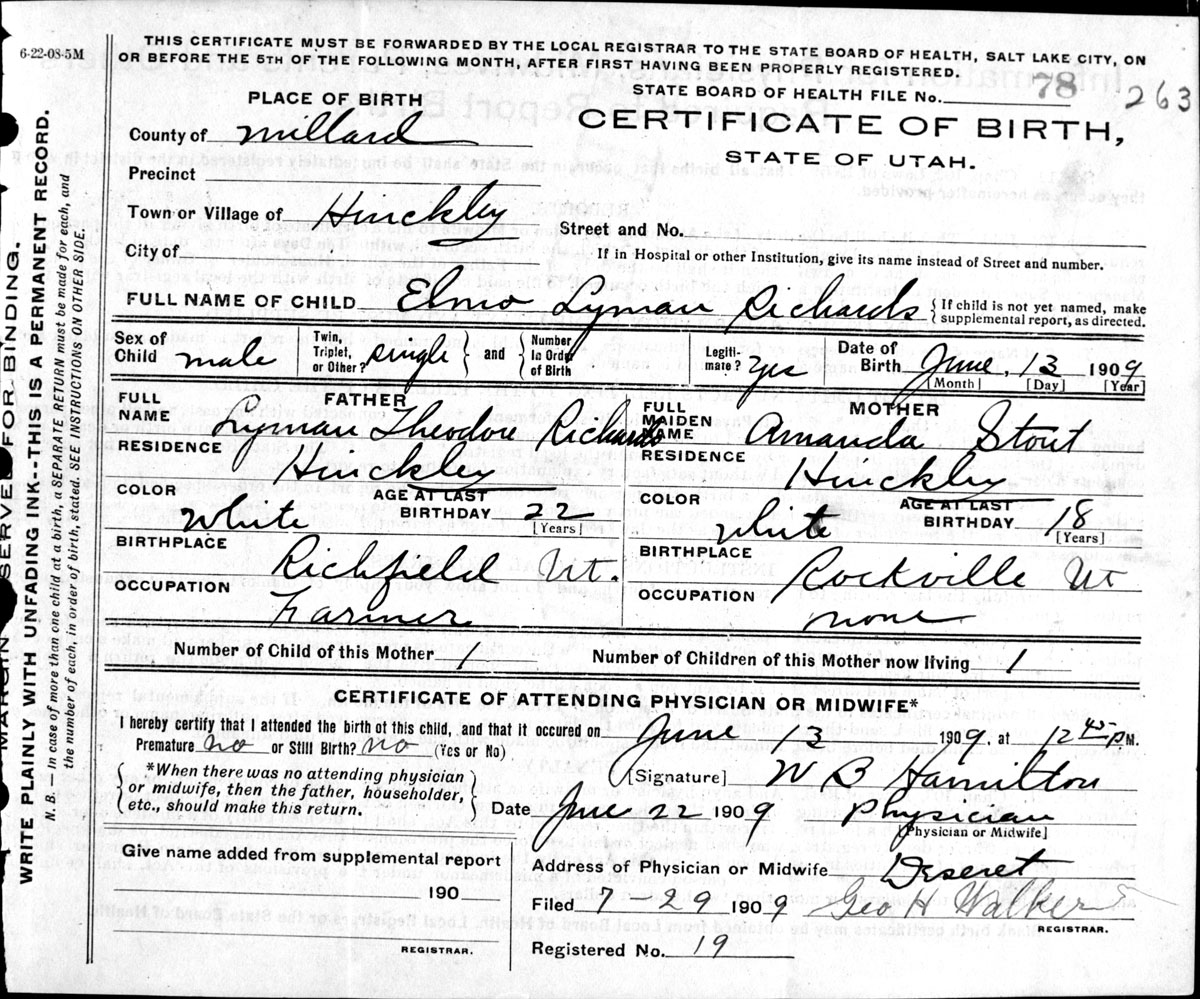 6-22-08-5M
THIS CERTIFICATE MUST BE FORWARDED BY THE LOCAL REGISTRAR TO THE STATE BOARD OF HEALTH, SALT LAKE CITY, ON
OR BEFORE THE 5TH OF THE FOLLOWING MONTH, AFTER FIRST HAVING BEEN PROPERLY REGISTERED.
STATE BOARD OF HEALTH FILE No. 78 263
PLACE OF BIRTH
CERTIFICATE OF BIRTH,
STATE OF UTAH.
County of Millard
Precinct
Town or Village of Hinckley
Street and No.
City of
If in Hospital or other Institution, give its name instead of Street and number.
FULL NAME OF CHILD Elmo Lyman Richards { If child is not yet named, make
supplemental report, as directed.
Sex of Child male Twin, Triplet, or Other? single } and { Number In Order of Birth Legiti- mate? yes Date of Birth June, 13 1909
[Month] [Day] [Year]
FATHER
FULL NAME Lyman Theodore Richards
RESIDENCE Hinckley
COLOR White AGE AT LAST BIRTHDAY 22
[Years]
BIRTHPLACE Richfield Ut.
OCCUPATION Farmer
MOTHER
FULL MAIDEN NAME Amanda Stout
RESIDENCE Hinckley
COLOR white AGE AT LAST BIRTHDAY 18
[Years]
BIRTHPLACE Rockville Ut
OCCUPATION none
Number of Child of this Mother 1 Number of Children of this Mother now living 1
CERTIFICATE OF ATTENDING PHYSICIAN OR MIDWIFE*
I hereby certify that I attended the birth of this child, and that it occured on June 13 1909 at 12 45 P M.
Premature no or Still Birth? no (Yes or No)
*When there was no attending physician
or midwife, then the father, householder,
etc., should make this return.
[Signature] W B Hamilton
Date June 22 1909 Physician
[Physician or Midwife]
Given name added from supplemental report
190
REGISTRAR.
Address of Physician or Midwife Deseret
Filed 7 29 1909 Geo H Walker
REGISTRAR.
Registered No. 19
MARGIN RESERVED FOR BINDING.
WRITE PLAINLY WITH UNFADING INK--THIS IS A PERMANENT RECORD.
N. B. — In case of more than one child at a birth, a SEPARATE RETURN must be made for each, and
the number of each, in order of birth, stated. SEE INSTRUCTIONS ON OTHER SIDE.